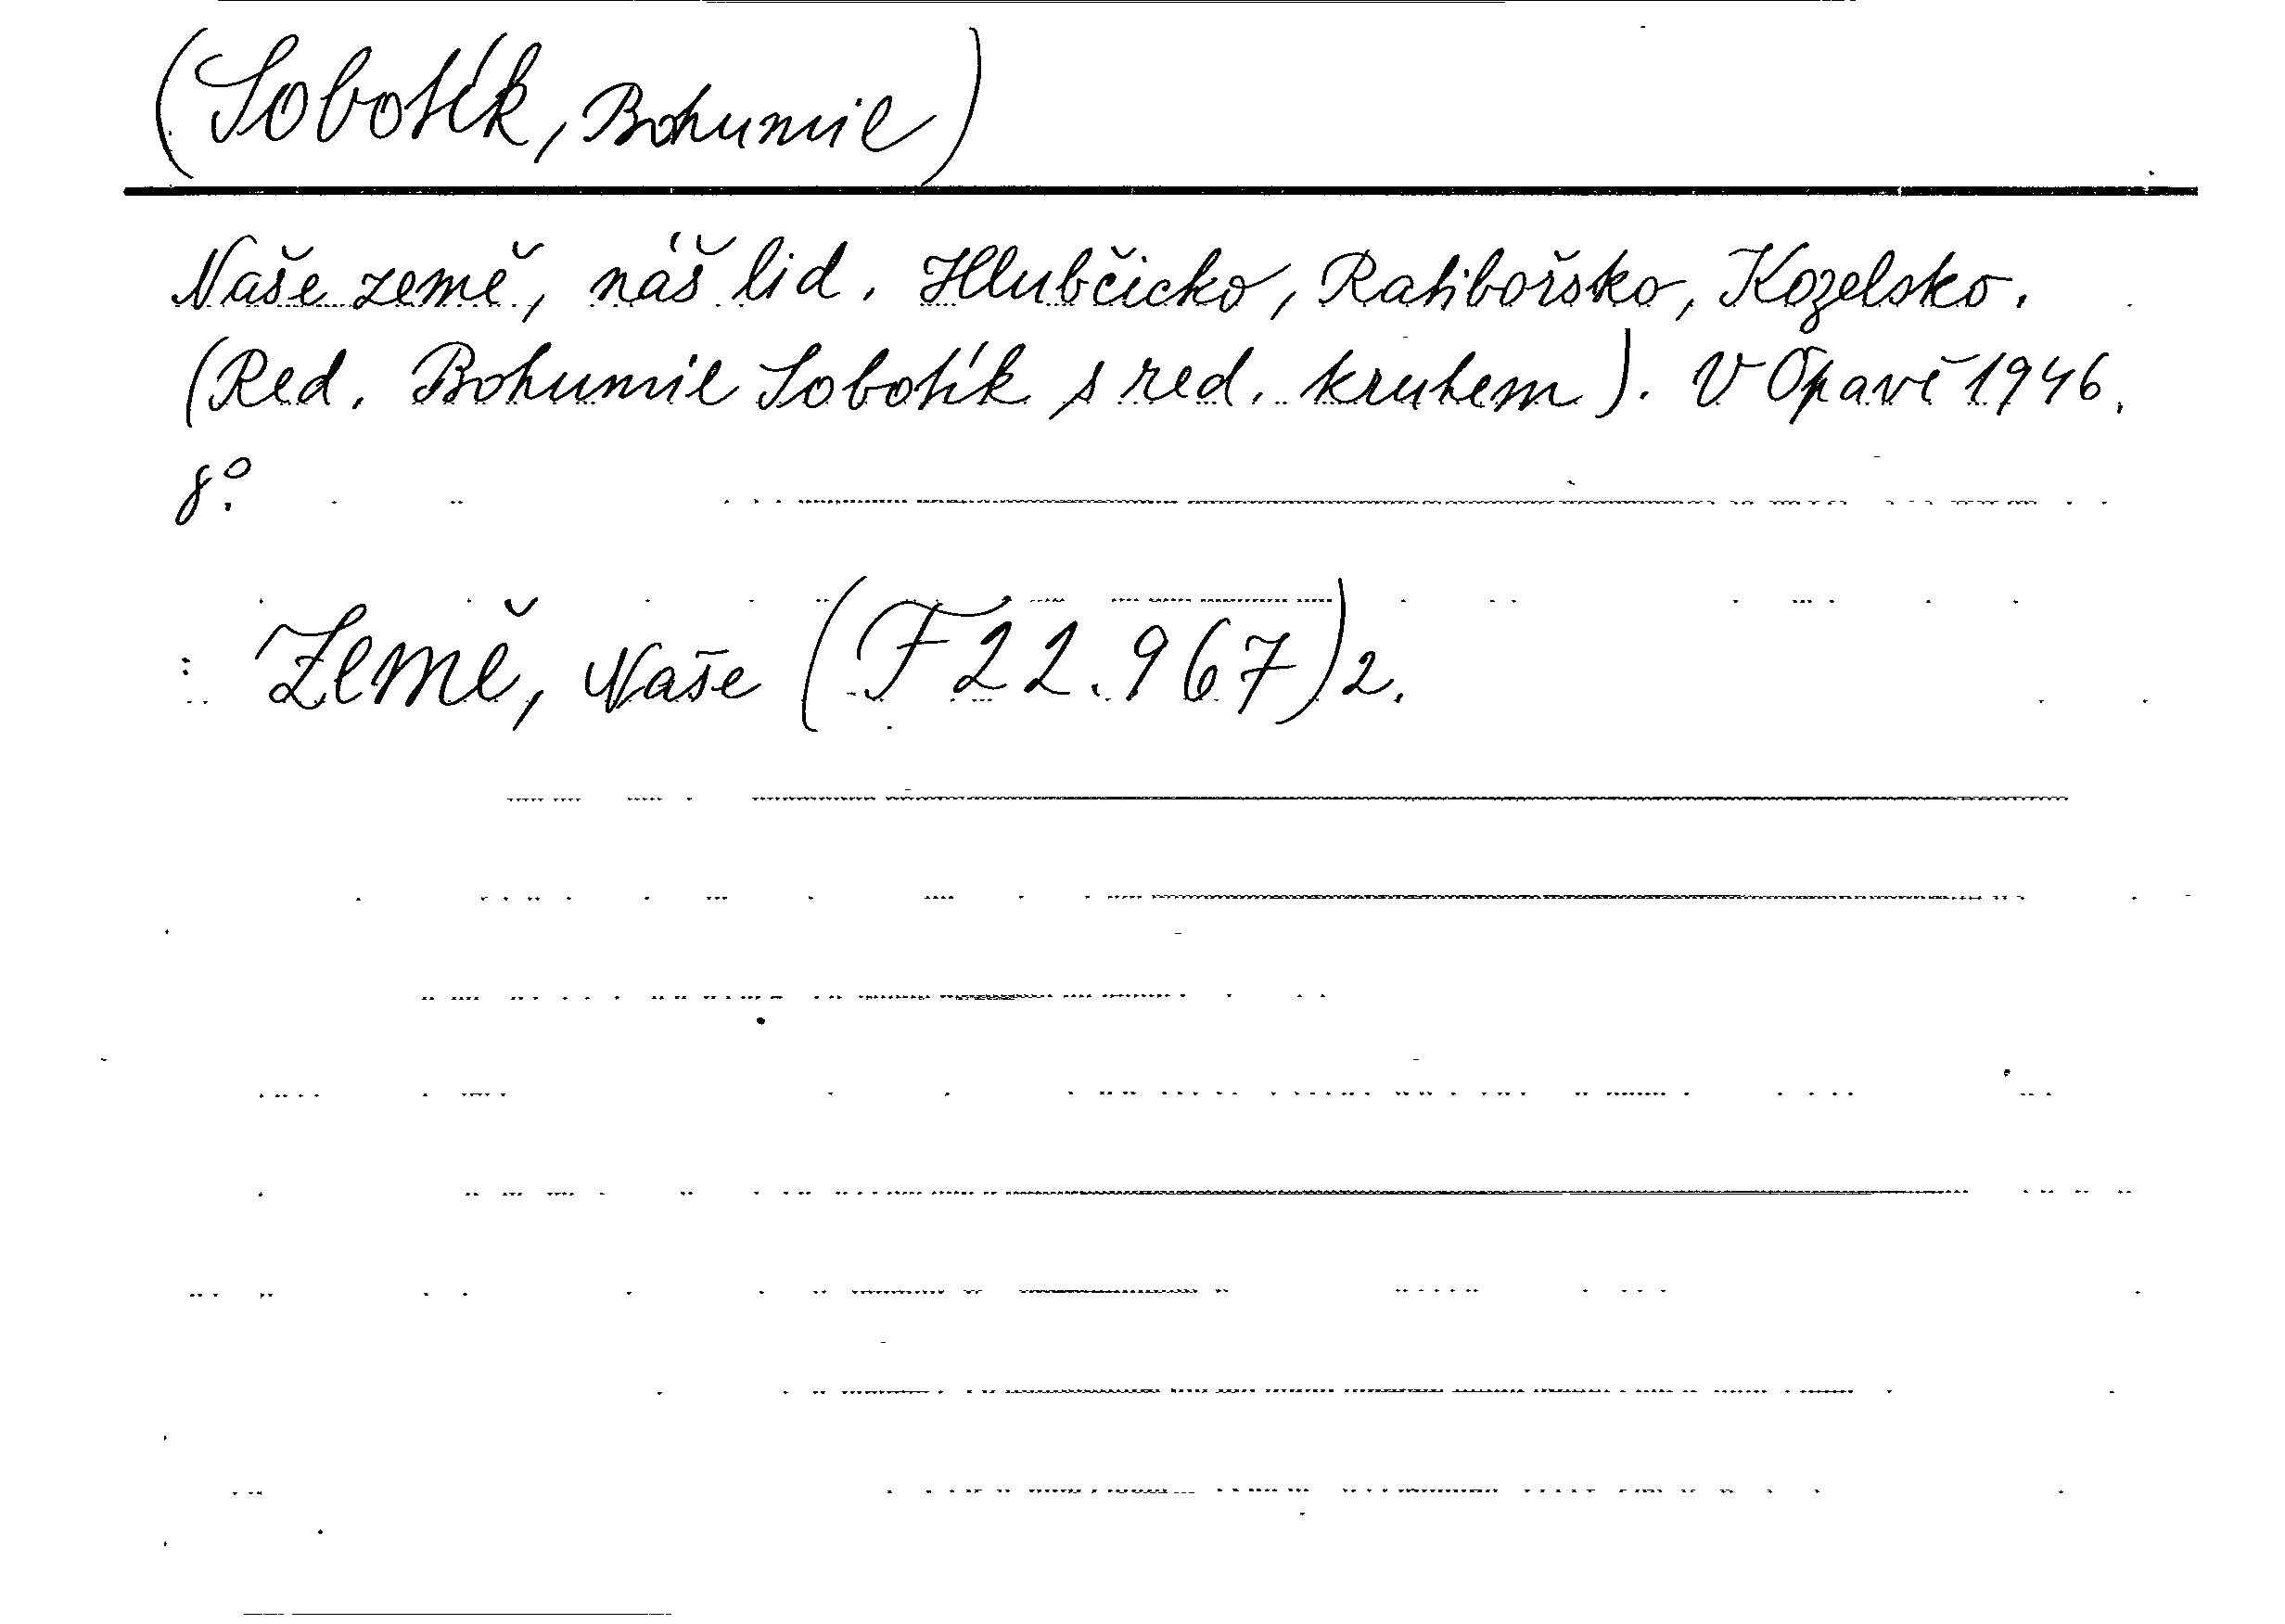 (Sobotík, Bohumil)
Naše země, náš lid. Hlubčicko, Ratibořsko, Kozelsko.
(Red. Bohumil Sobotík s red. kruhem). V Opavě 1946.
8°.
Země, Naše (F 22.967) 2.